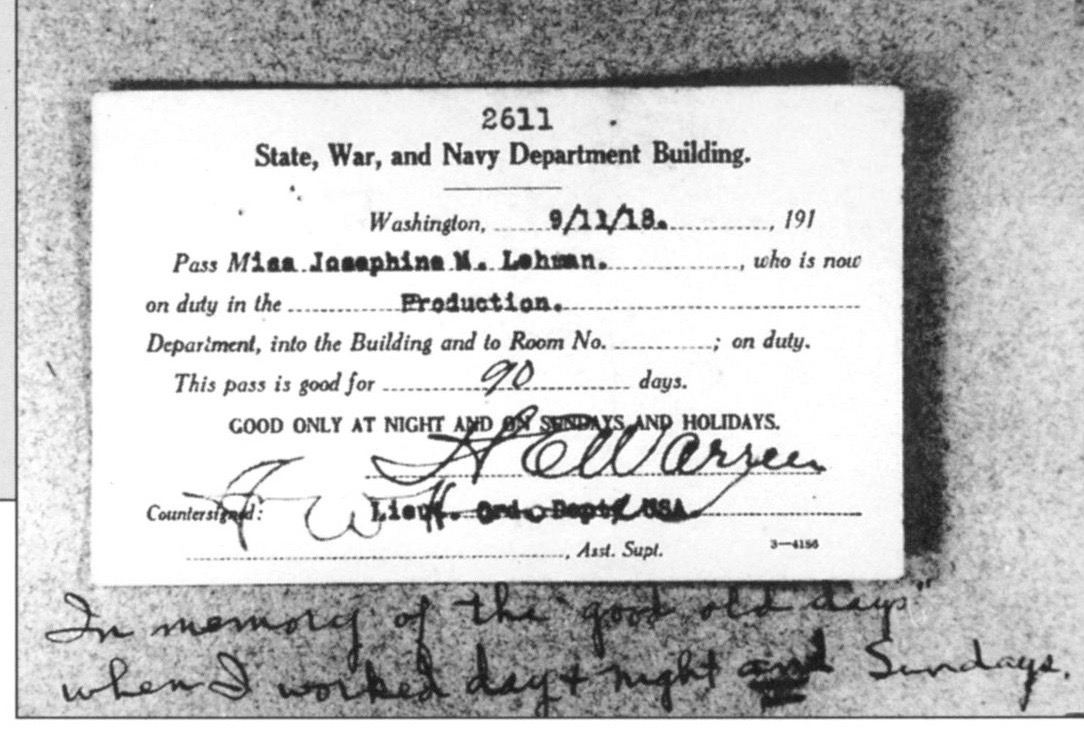 2611
State, War, and Navy Department Building.
Washington, 9/11/18. , 191
Pass Miss Josephine M. Lehman. , who is now
on duty in the Production.
Department, into the Building and to Room No. ; on duty.
This pass is good for 90 days.
GOOD ONLY AT NIGHT AND ON SUNDAYS AND HOLIDAYS.
H E Warren
Countersigned: Lieut. Ord. Dept. USA.
, Asst. Supt. 3—4186
In memory of the "good old days"
when I worked day + night and Sundays.